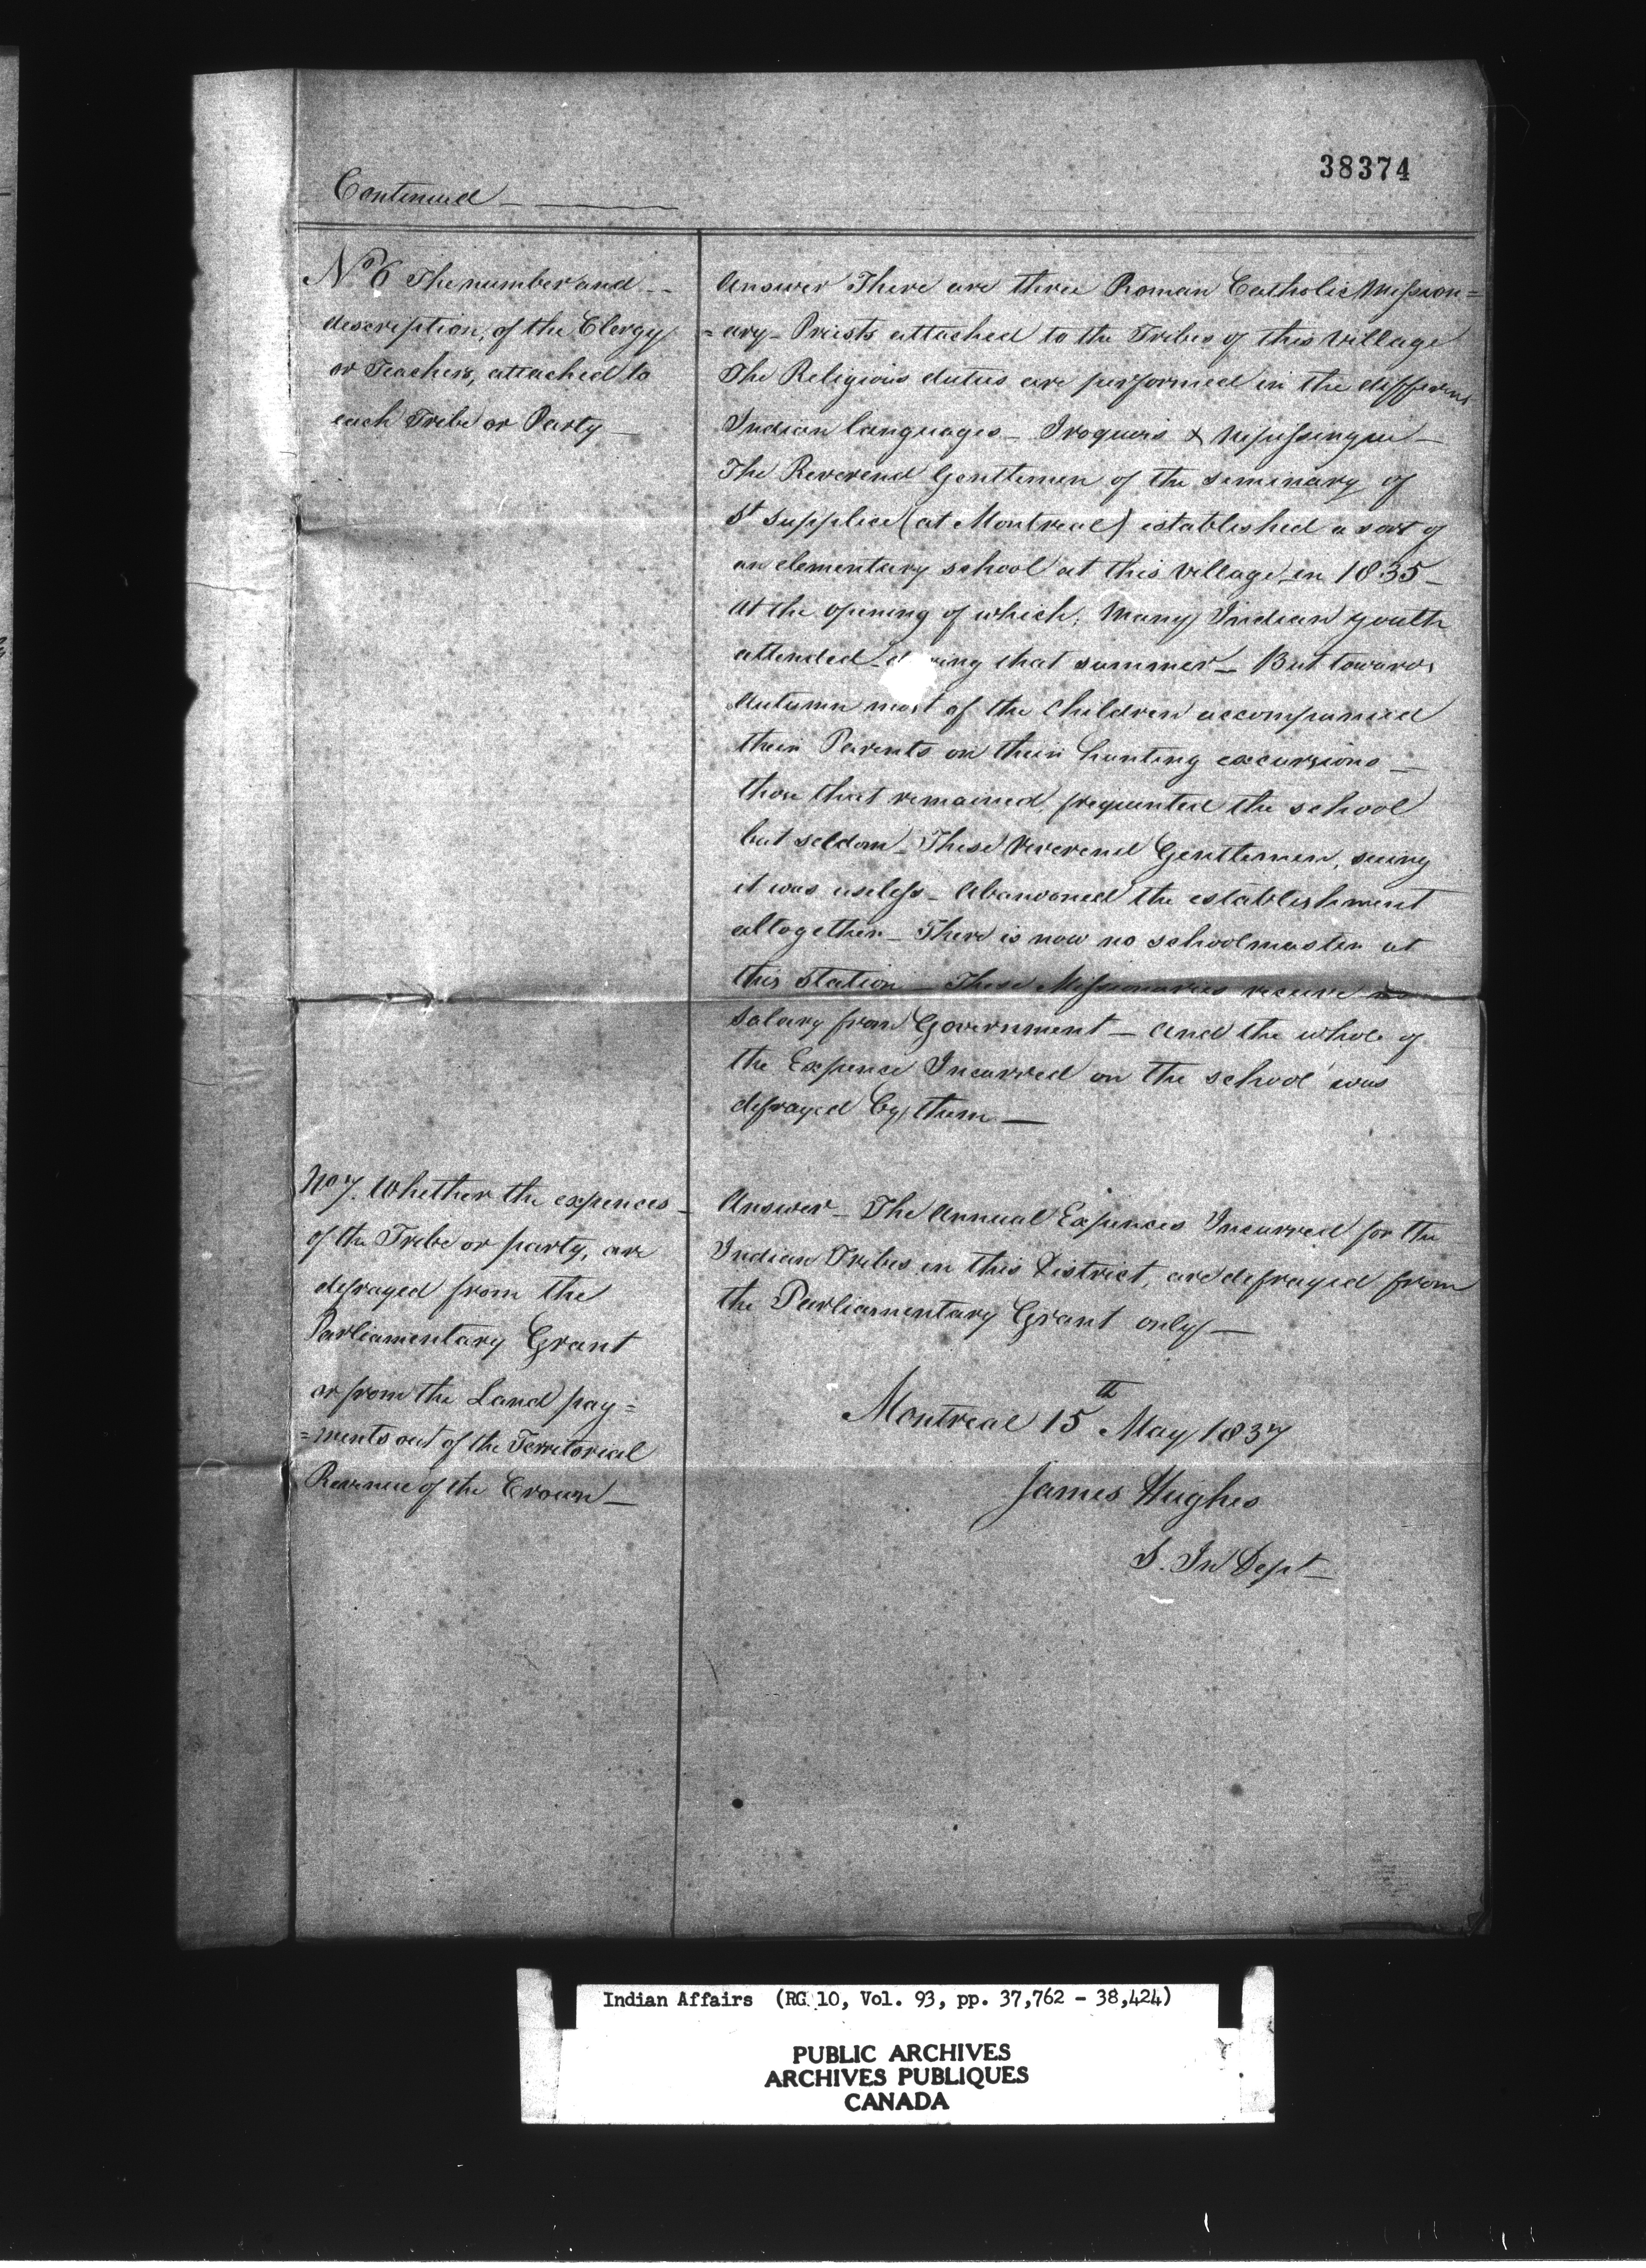 38374
Continued
No 6 The number and
description, of the Clergy
or Teachers, attached to
each Tribe or Party
Answer There are three Roman Catholic Mission=
=ary Priests attached to the Tribes of this Village
The Religious duties are performed in the different
Indian languages - Iroquois & Nipissingue -
The Reverend Gentlemen of the seminary of
St Supplice (at Montreal) established a sort of
an elementary school at this Village in 1835 -
At the opening of which, Many Indian youth
attended - during that summer - But towards
Autumn most of the Children accompanied
their Parents on their hunting excursions -
those that remained frequented the school
but seldom - These Reverend Gentlemen, seeing
it was useless - Abandoned the establishment
altogether - There is now no schoolmaster at
this Station - These Missionaries receive no
Salary from Government - and the whole of
the Expence Incurred on the school was
defrayed by them -
No 7. Whether the expences
of the Tribe or party, are
defrayed from the
Parliamentary Grant
or from the Land pay=
=ments out of the Territorial
Revenue of the Crown -
Answer - The Annual Expences Incurred for the
Indian Tribes in this District, are defrayed from
the Parliamentary Grant only -
Montreal 15th May 1837
James Hughes
S. In Dept
Indian Affairs (RG 10, Vol. 93, pp. 37,762 - 38,424)
PUBLIC ARCHIVES
ARCHIVES PUBLIQUES
CANADA